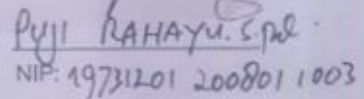 Puji RAHAYU. S.Pd.
NIP: 19731201 200801 1003